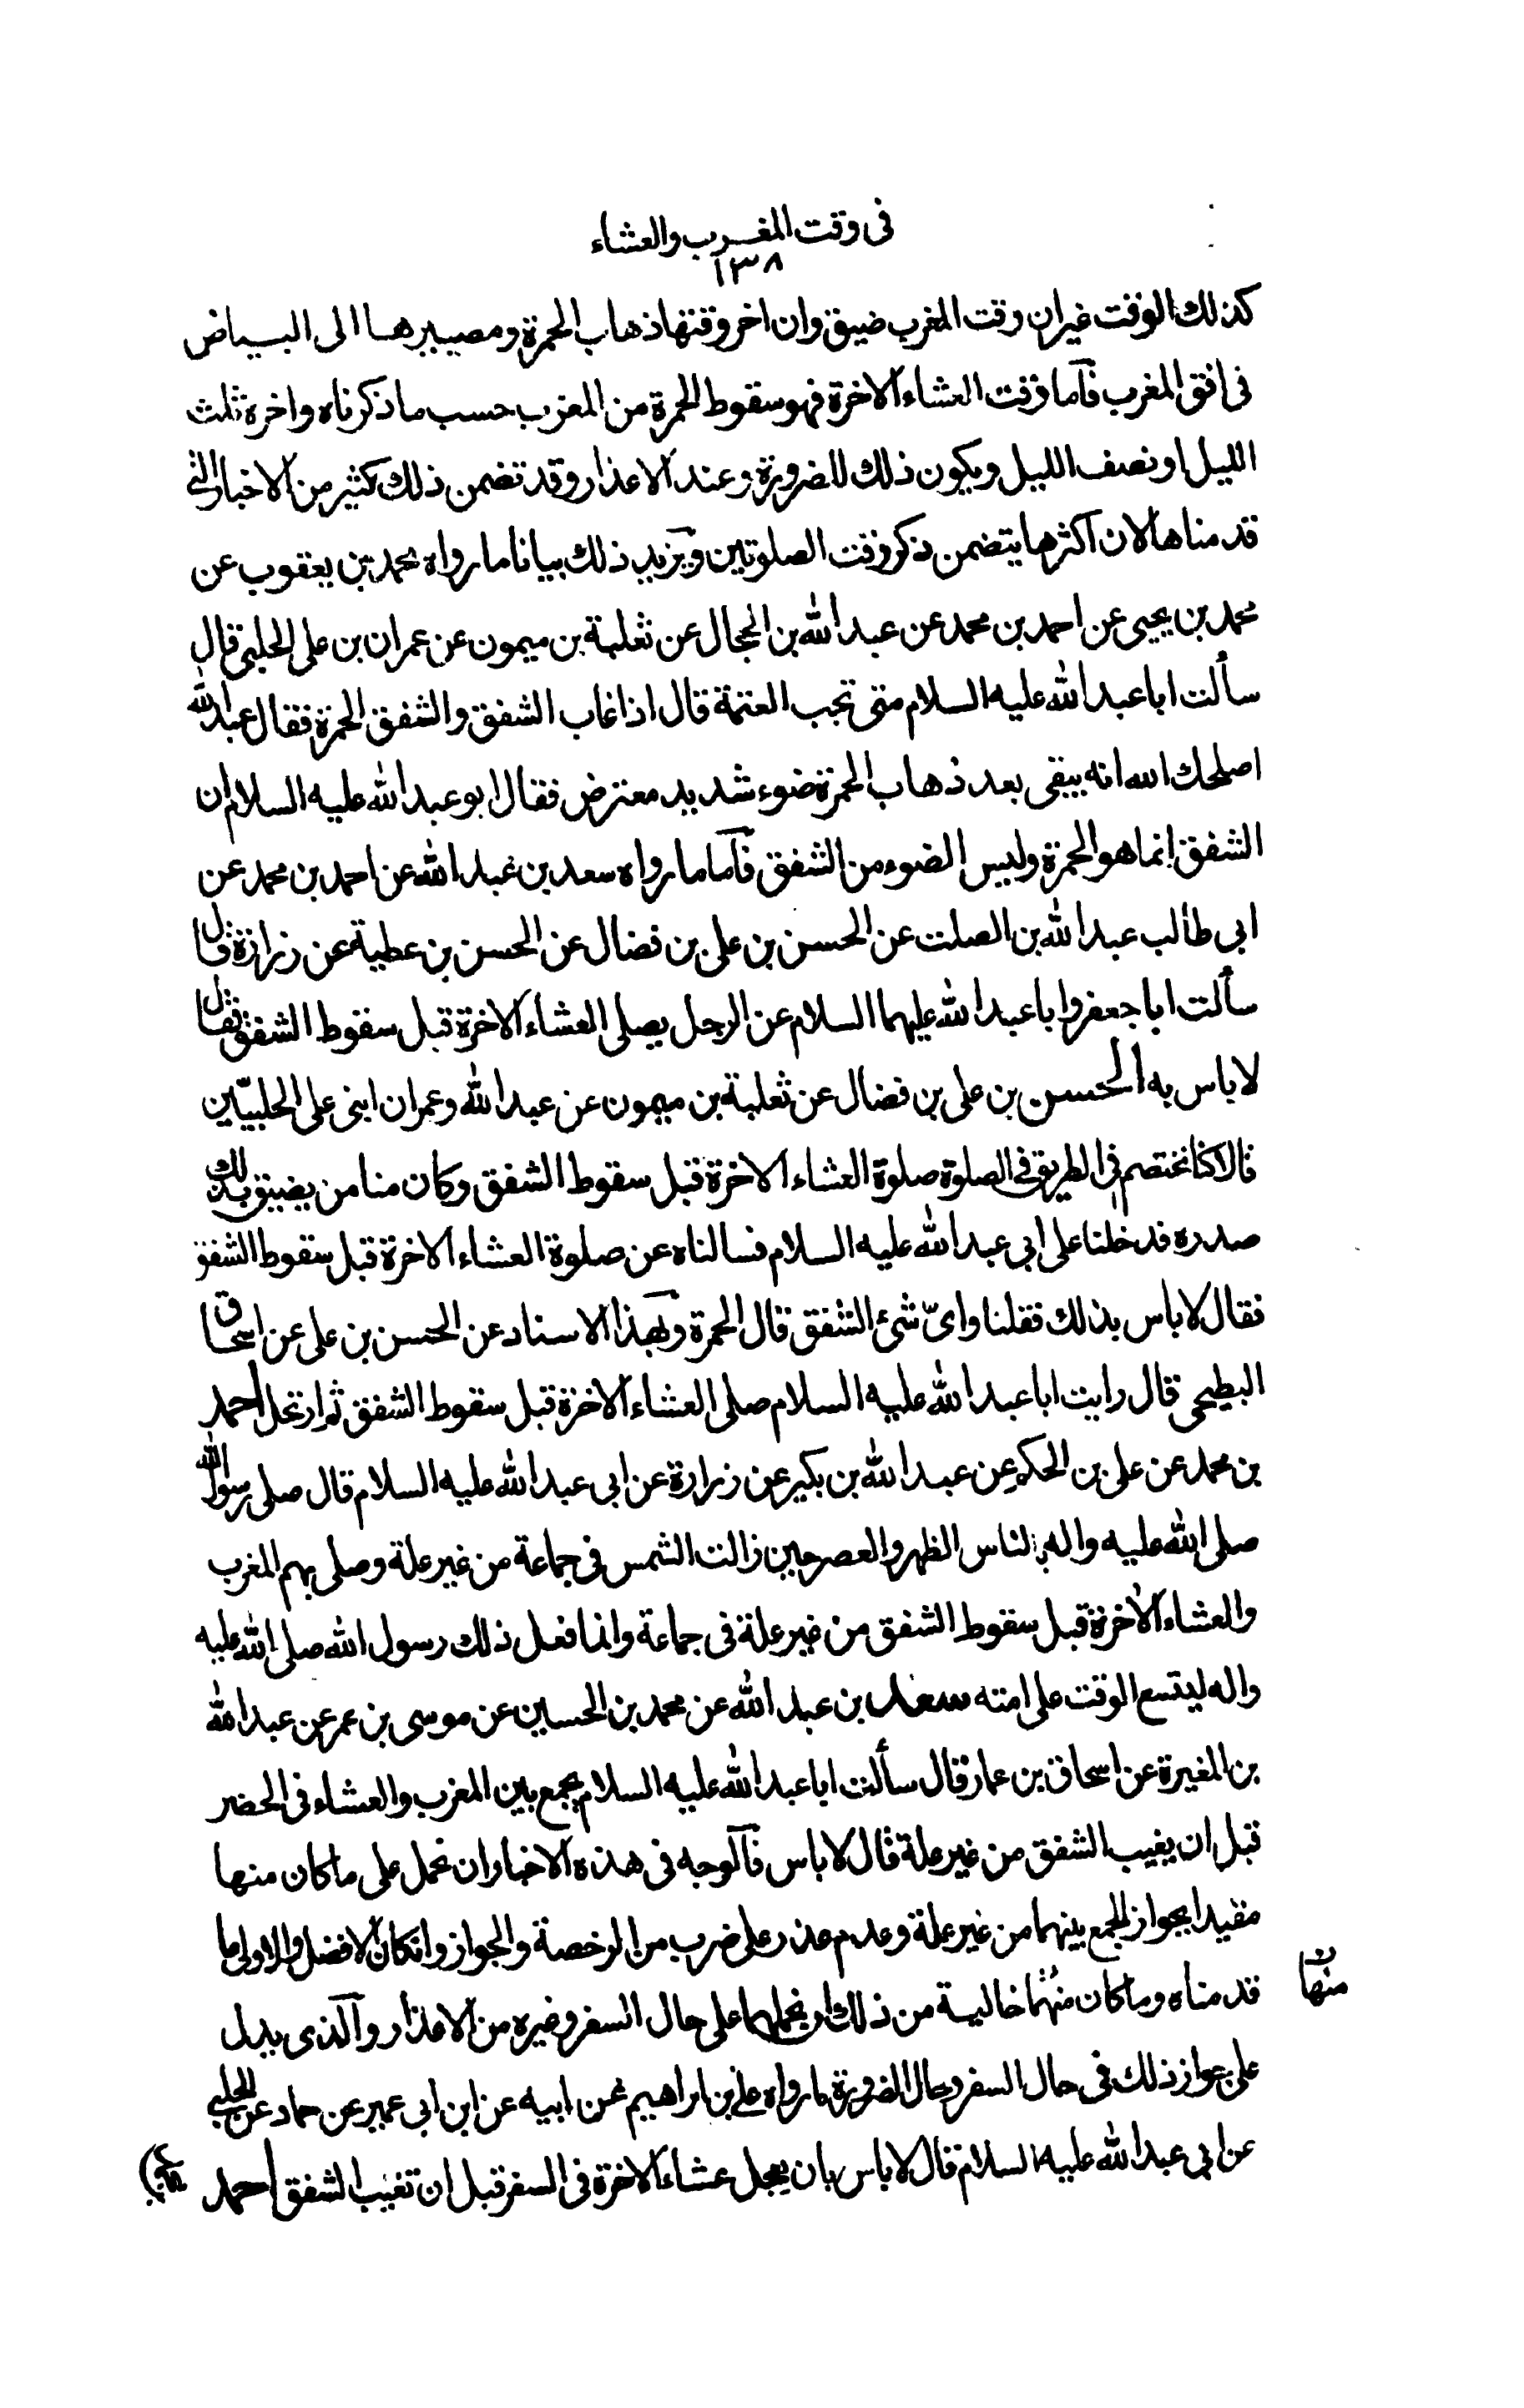 فى وقت المغرب والعشاء
١٣٨
كذلك الوقت غيران وقت المغرب ضيق وان اخر وقتها ذهاب الحمرة ومصيرها الى البياض
فى افق المغرب فآما وقت العشاء الاخرة فهو سقوط الحمرة من المغرب حسب ما ذكرناه واخره ثلث
الليل او نصف الليل ويكون ذلك للضرورة وعند الاعذار وقد تضمن ذلك كثير من الاخبار التى
قدمناها لان اكثرها يتضمن ذكر وقت الصلوتين ويزيد ذلك بيانا ما رواه محمد بن يعقوب عن
محمد بن يحيى عن احمد بن محمد عن عبد الله بن الحجال عن ثعلبة بن ميمون عن عمران بن على الحلبى قال
سألت ابا عبد الله عليه السلام متى تجب العتمة قال اذا غاب الشفق والشفق الحمرة فقال عبيد الله
اصلحك الله انه يبقى بعد ذهاب الحمرة ضوء شديد معترض فقال ابو عبد الله عليه السلام ان
الشفق انما هو الحمرة وليس الضوء من الشفق فآما ما رواه سعد بن عبد الله عن احمد بن محمد عن
ابى طالب عبد الله بن الصلت عن الحسن بن على بن فضال عن الحسن بن عطية عن زرارة قال
سألت ابا جعفر وابا عبد الله عليهما السلام عن الرجل يصلى العشاء الاخرة قبل سقوط الشفق فقال
لا باس به الحسن بن على بن فضال عن ثعلبة بن ميمون عن عبد الله وعمران ابنى على الحلبيّين
قالا كنا نختصم فى الطريق فى الصلوة صلوة العشاء الاخرة قبل سقوط الشفق وكان منا من يضيق بذلك
صدره فدخلنا على ابى عبد الله عليه السلام فسالناه عن صلوة العشاء الاخرة قبل سقوط الشفق
فقال لا باس بذلك فقلنا واىّ شئ الشفق قال الحمرة وبهذا الاسناد عن الحسن بن على عن اسحاق
البطيحى قال رايت ابا عبد الله عليه السلام صلى العشاء الاخرة قبل سقوط الشفق ثم ارتحل احمد
بن محمد عن على بن الحكم عن عبد الله بن بكير عن زرارة عن ابى عبد الله عليه السلام قال صلى رسول الله
صلى الله عليه واله بالناس الظهر والعصر حين زالت الشمس فى جماعة من غير علة وصلى بهم المغرب
والعشاء الاخرة قبل سقوط الشفق من غير علة فى جماعة وانما فعل ذلك رسول الله صلى الله عليه
واله ليتسع الوقت على امته سعد بن عبد الله عن محمد بن الحسين عن موسى بن عمر عن عبد الله
بن المغيرة عن اسحاق بن عمار قال سألت ابا عبد الله عليه السلام يجمع بين المغرب والعشاء فى الحضر
قبل ان يغيب الشفق من غير علة قال لا باس فآلوجه فى هذه الاخبار ان نحمل على ما كان منها
مقيدا بجواز الجمع بينهما من غير علة وعدم عذر على ضرب من الرخصة والجواز وانكان الافضل والاولى ما
قدمناه وما كان منهما خالية من ذلك ان نحملهما على حال السفر وغيره من الاعذار وآلذى يدل
منها
على جواز ذلك فى حال السفر وحال الضرورة ما رواه على بن ابراهيم عن ابيه عن ابن ابى عمير عن حماد عن الحلبى
عن ابى عبد الله عليه السلام قال لا باس بان يعجل عشاء الاخرة فى السفر قبل ان تغيب الشفق احمد